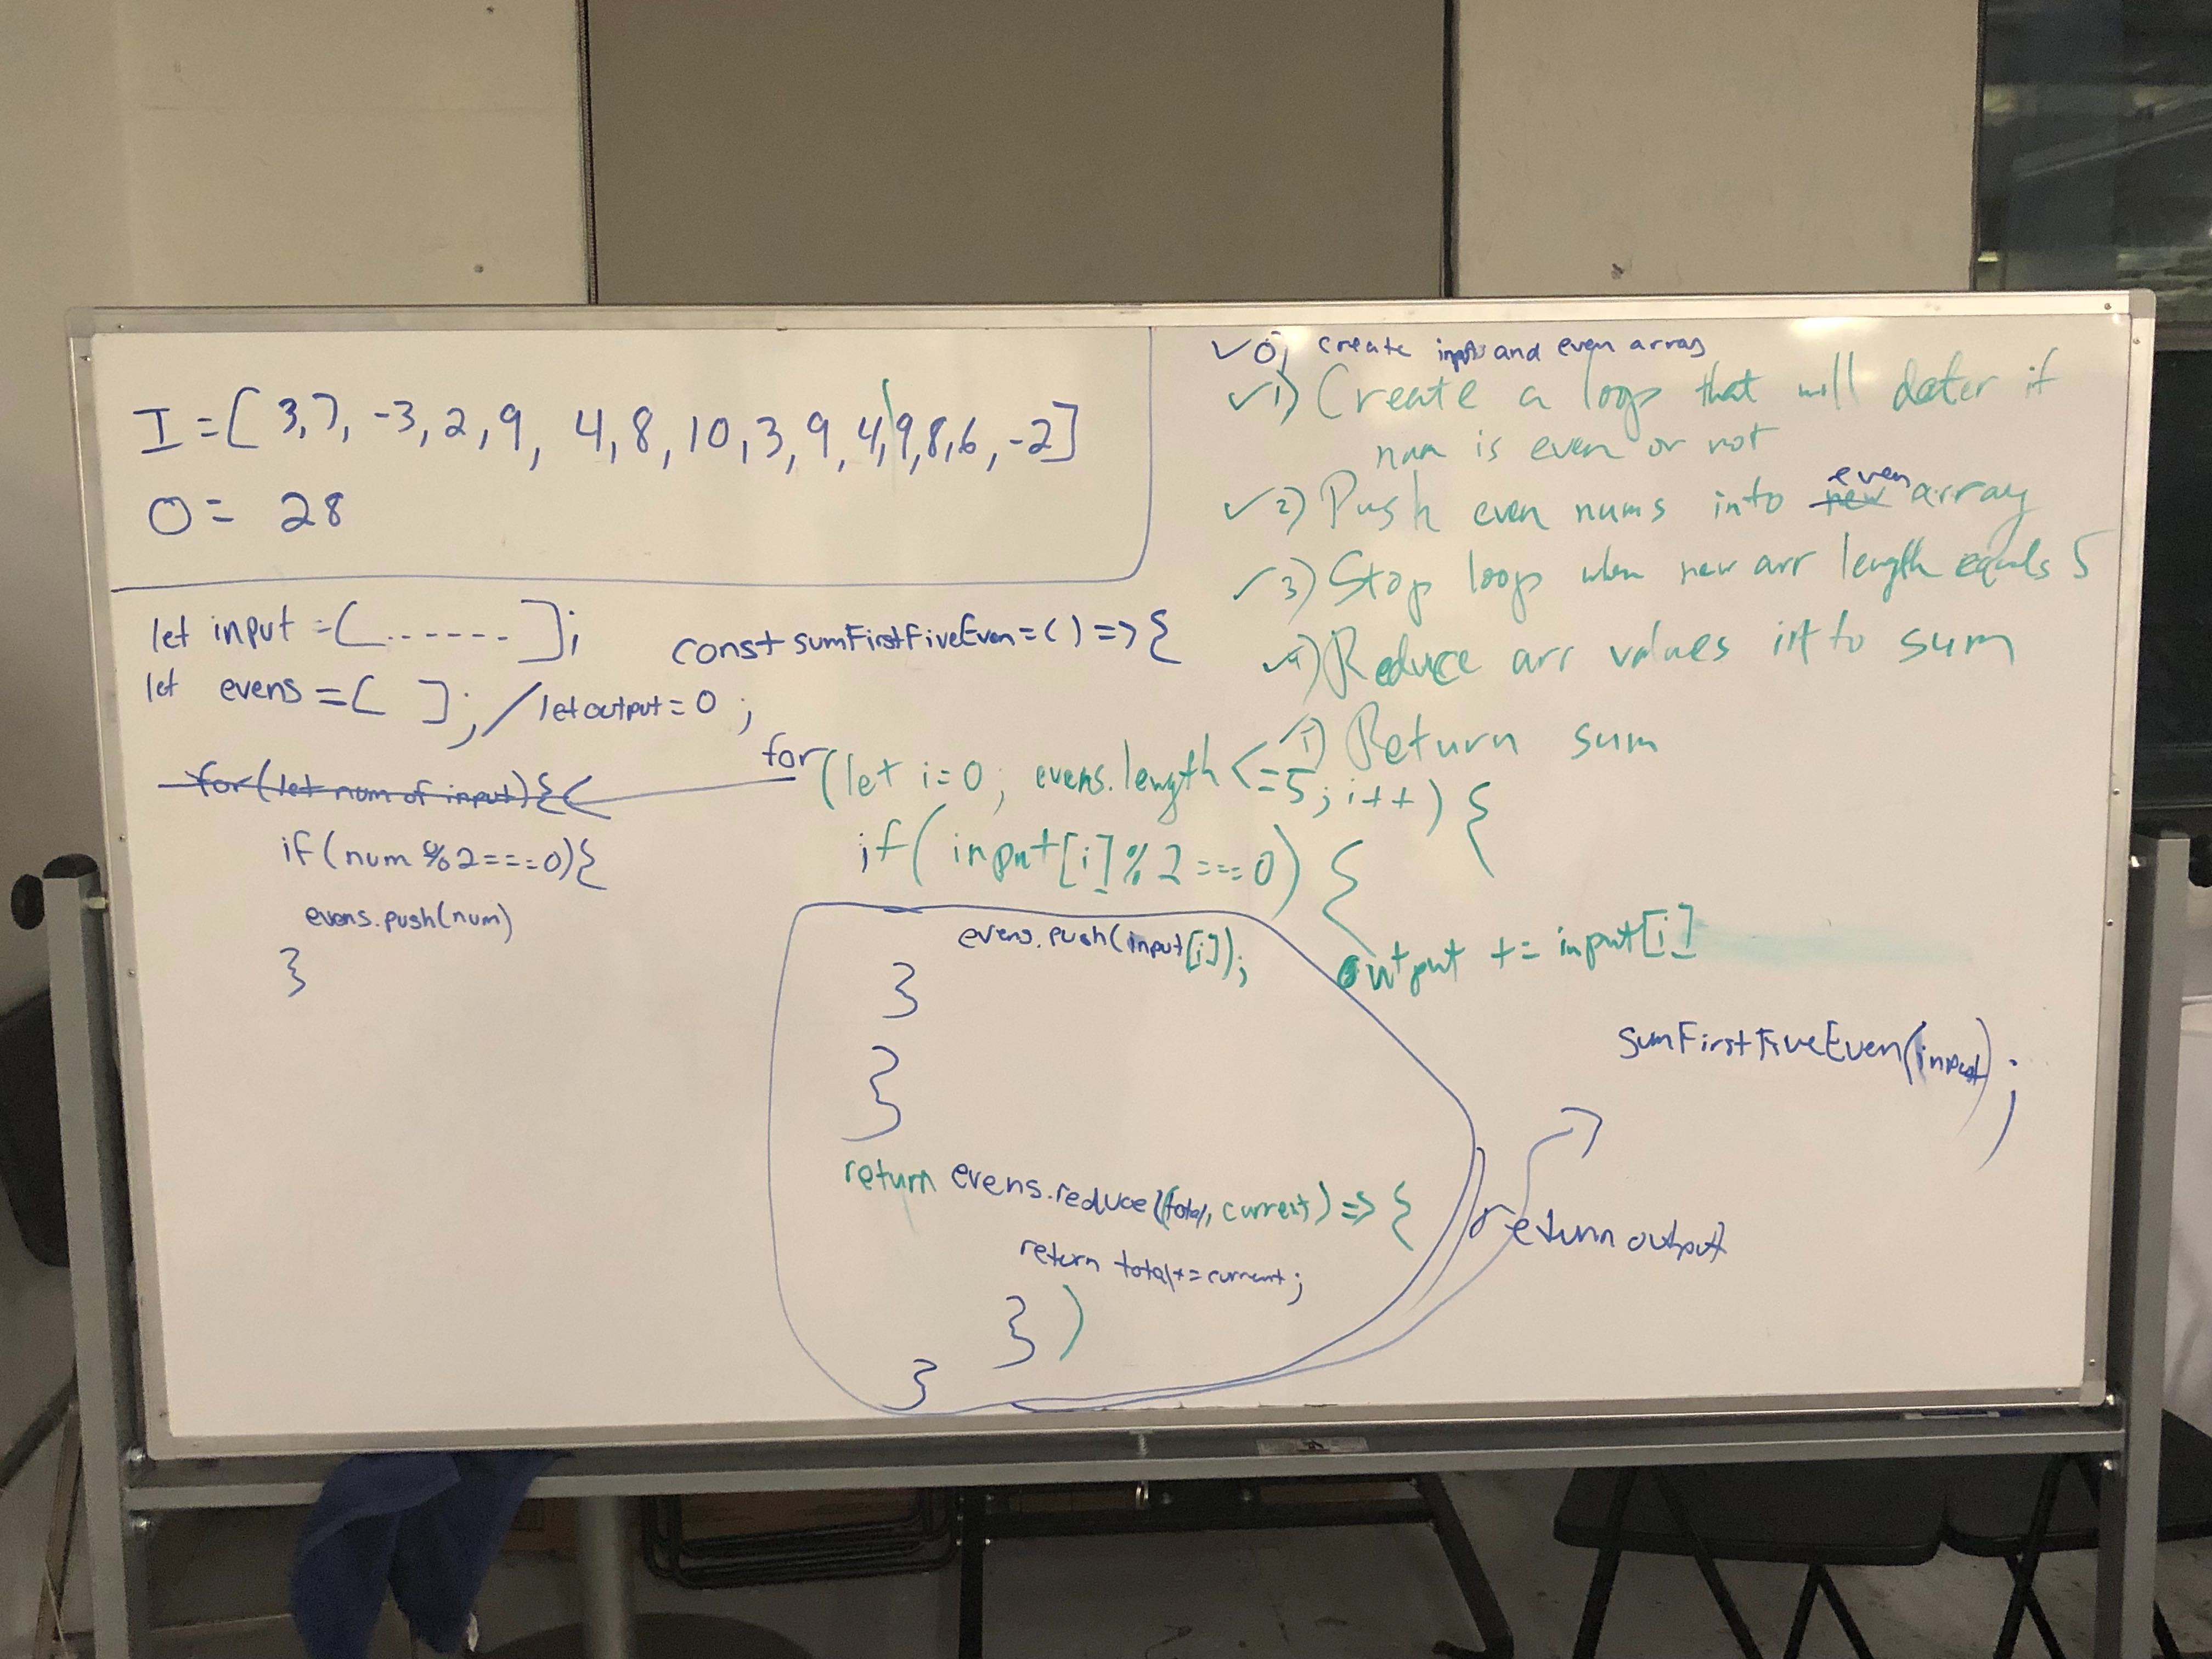 I = [ 3, 7, -3, 2, 9, 4, 8, 10, 3, 9, 4, 9, 8, 6, -2]
O = 28
✓ 0) create inputs and even array
✓ 1) Create a loop that will deter if
num is even or not
✓ 2) Push even nums into new even array
✓ 3) Stop loop when new arr length equals 5
✓ 4) Reduce arr values into sum
✓ 5) Return sum
let input = [ ...... ];
let evens = [ ]; / let output = 0 ;
for (let num of input) {
if (num % 2 === 0) {
evens.push(num)
}
const sumFirstFiveEven = ( ) => {
for (let i = 0; evens.length <= 5; i++) {
if ( input[i] % 2 === 0) {
evens.push(input[i]);
output += input[i]
}
}
return evens.reduce((total, current) => {
return total += current;
} )
}
return output
sumFirstFiveEven(input);